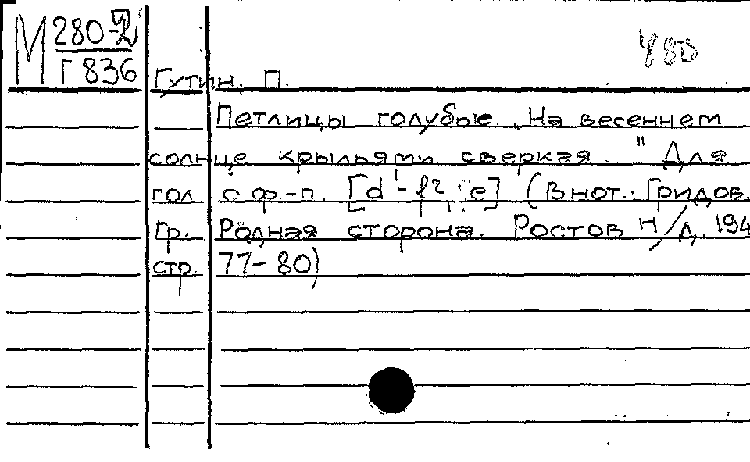 М 280-2
Г 836
480
Гутин. П.
Петлицы голубые. „На весеннем
солнце крыльями сверкая. " Для
гол. с ф-п. [d'-f2; e] (В нот.: Гридов.
Гр. Родная сторона. Ростов н/Д. 194
стр. 77-80)